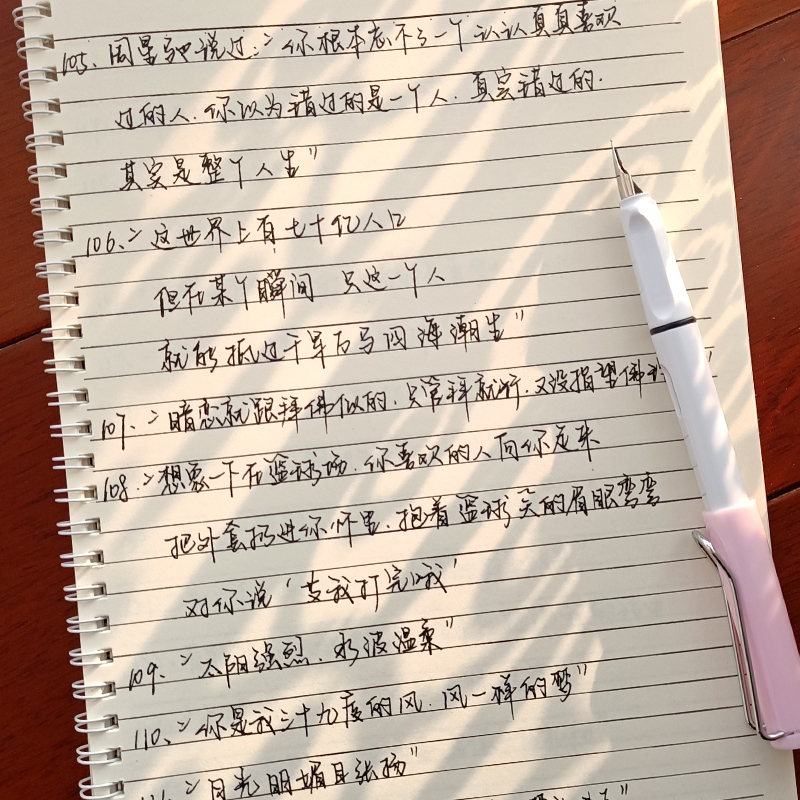 105、周星驰说过:"你根本忘不了一个认认真真喜欢
过的人.你以为错过的是一个人.真实错过的.
其实是整个人生"
106、"这世界上有七十亿人口
但在某个瞬间 只这一个人
就能抵过千军万马四海潮生"
107、"暗恋就跟拜佛似的.只管拜就行.又没指望佛
108."想象一下在篮球场.你喜欢的人向你走来
把外套扔进你怀里.抱着篮球笑的眉眼弯弯
对你说'等我打完哦'
109、"太阳强烈.水波温柔"
110、"你是我三十九度的风.风一样的梦"
"月光明媚且张扬"